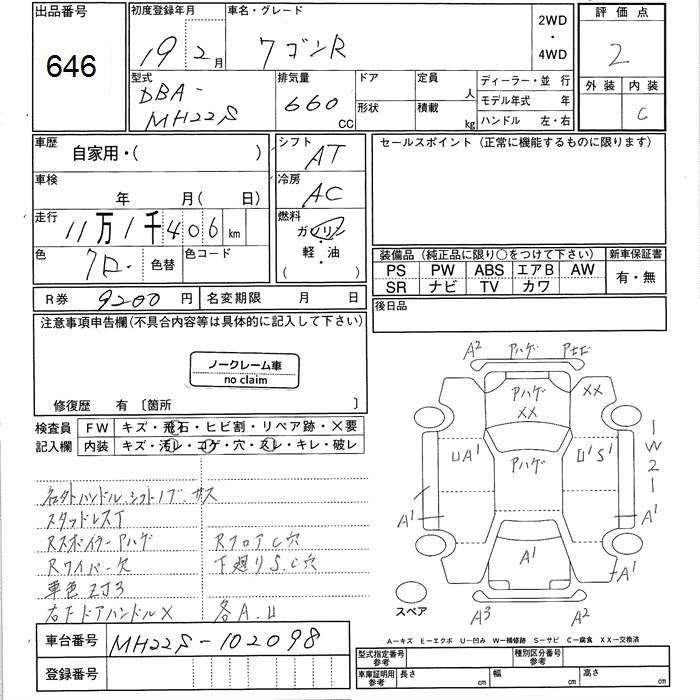 出品番号
646
初度登録年月
19年2月
車名・グレード
ワゴンR
2WD
・
4WD
評価点
2
外装 内装
C
型式
DBA-
MH22S
排気量
660
CC
ドア
形状
定員
人
積載
kg
ディーラー・並 行
モデル年式 年
ハンドル 左・右
車歴
自家用・( )
シフト
AT
セールスポイント (正常に機能するものに限ります)
車検
年 月( 日)
冷房
AC
走行
11万1千406km
燃料
ガソリン
軽・油
色
クロ.
色替
色コード
装備品 (純正品に限り○をつけて下さい)
新車保証書
PS PW ABS エアB AW
SR ナビ TV カワ
有・無
R券 9200円
名変期限 月 日
後日品
注意事項申告欄(不具合内容等は具体的に記入して下さい)
ノークレーム車
no claim
修復歴 有 〔箇所 〕
検査員
記入欄
FW キズ・飛石・ヒビ割・リペア跡・×要
内装 キズ・汚レ・コゲ・穴・スレ・キレ・破レ
スタッドレスT
Rスポイラーアハゲ
RフロアC穴
Rワイパー欠
下廻りS.C穴
車色
右Fドアハンドル×
各A.U
A2 アハゲ
アハゲ
XX
XX
UA1
アハゲ
U1S1
1
W2
1
A1
A1
A1
A1
スペア
A3
A2
A-キズ E-エクボ U-凹み W-補修跡 S-サビ C-腐食 XX-交換済
車台番号
MH22S-102098
登録番号
型式指定番号
参考
種別区分番号
参考
車庫証明用
参考
長さ cm
幅 cm
高さ cm